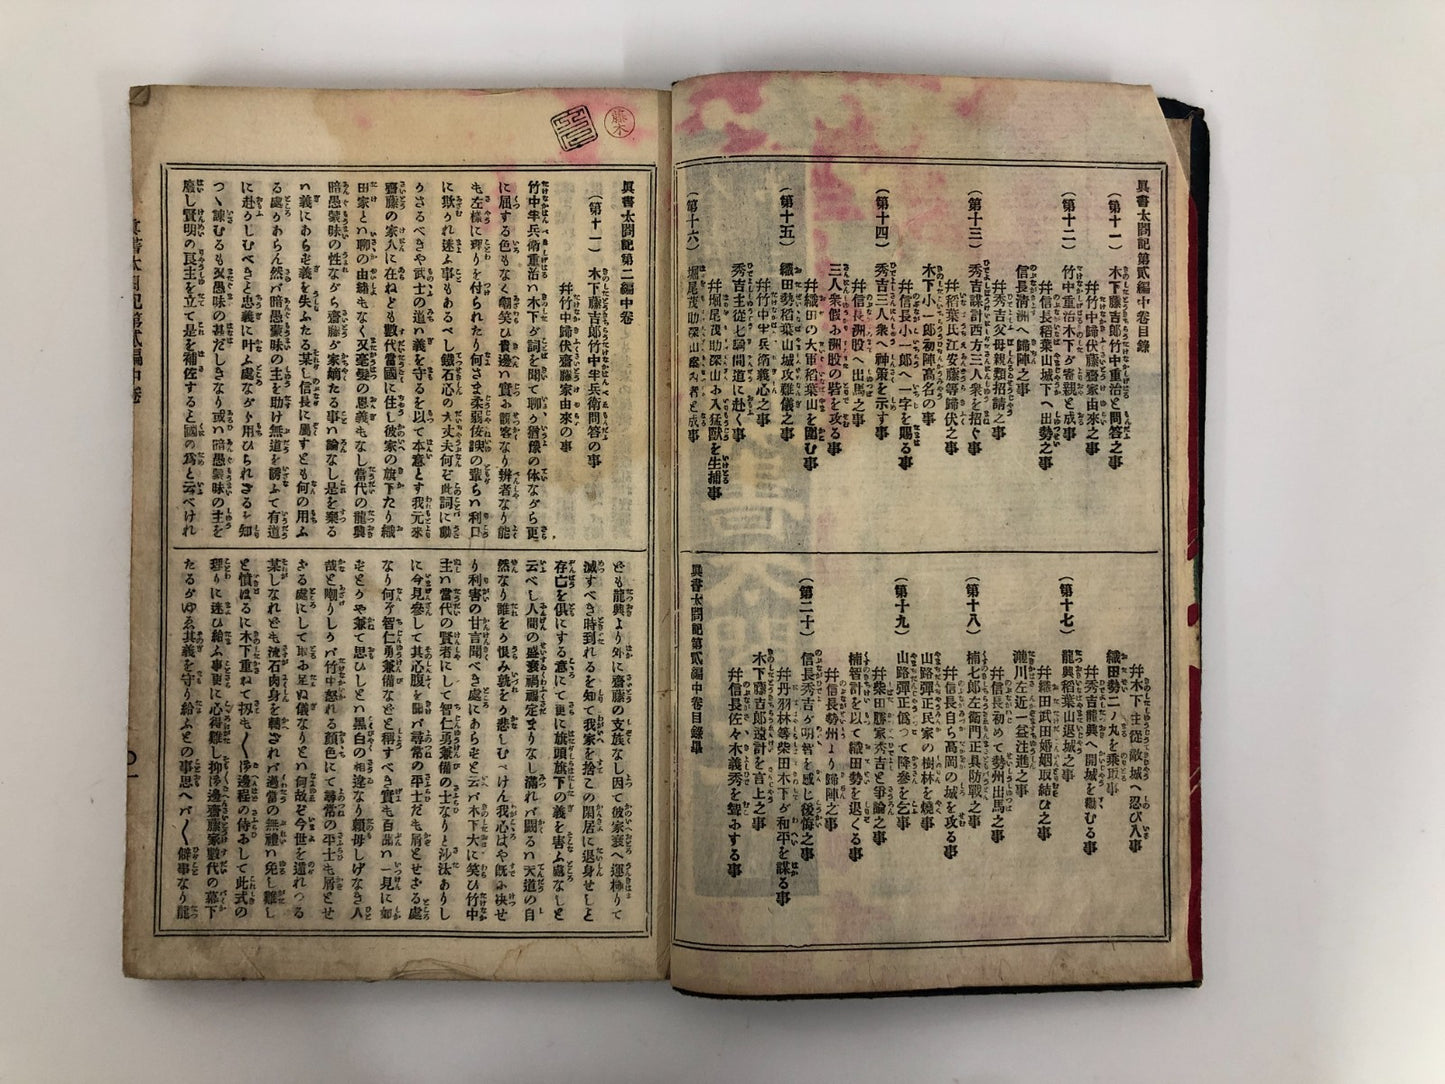 眞書太閤記第貳編中卷目録
(第十一)
木下藤吉郎竹中重治と問答之事
幷竹中歸伏齋藤家由來之事
(第十二)
竹中重治木下が寄親と成事
幷信長稻葉山城下へ出勢之事
信長清洲へ歸陣之事
(第十三)
幷秀吉父母親類招請之事
秀吉謀計西方三人衆を招く事
幷稻葉氏江安藤等歸伏之事
木下小一郎初陣高名の事
幷信長小一郎へ一字を賜る事
(第十四)
秀吉三人衆へ神策を示す事
幷信長洲股へ出馬之事
三人衆假お洲股の砦を攻る事
幷織田の大軍稻葉山を圍む事
(第十五)
織田勢稻葉山城攻難儀之事
幷竹中半兵衞義心之事
秀吉主從七騎間道に赴く事
幷堀尾茂助深山お入猛獸を生捕事
(第十六)
堀尾茂助深山 者と成事
幷木下主從敵城へ忍び入事
織田勢二ノ丸を乘取事
幷秀吉龍興へ開城を勸むる事
(第十七)
龍興稻葉山退城之事
幷織田武田婚姻取結ひ之事
瀧川左近一益注進之事
幷信長初めて勢州出馬之事
(第十八)
楠七郎左衞門正具防戰之事
幷信長自ら高岡の城を攻る事
山路彈正民家の樹林を燒事
(第十九)
山路彈正僞つて降參を乞事
幷柴田勝家秀吉と爭論之事
楠智計を以て織田勢を退くる事
幷信長勢州より歸陣之事
(第二十)
信長秀吉が明智を感じ後悔之事
幷丹羽林等柴田木下が和平を謀る事
木下藤吉郎遠計を言上之事
幷信長佐々木義秀を聟おする事
眞書太閤記第貳編中卷目録畢
藤木
眞書太閤記第二編中卷
(第十一) 木下藤吉郎竹中半兵衞問答の事
幷竹中歸伏齋藤家由來の事
竹中半兵衞重治ハ木下が詞を聞て聊か猶豫の体ながら更
に屈する色もなく嘲笑ひ貴邊ハ實お說客なり辨者なり能
も左樣に理りを付られたり何さま柔弱佞諛の輩らハ利口
に欺むかれ迷ふ事もあるべし鐵石心の大丈夫何ぞ此詞に動
かさるべきや武士の道ハ義を守るを以て本意とす我元來
齋藤の家人に在ねども數代當國に住し彼家の旗下たり織
田家とハ聊の由緣もなく又毫髮の恩義もなし當代の龍興
暗愚蒙昧の性ながら齋藤が家嫡たる事ハ論なし是を棄る
ハ義にあらざ義を失ふたる某し信長に屬すとも何の用ふ
る處かあらん然バ暗愚蒙昧の主を助け無道を諫ふて有道
に赴かしむべきこそ忠義に叶ふ處ながら用ひられざるを知
つゝ諫むるも又愚昧の甚だしきなり或ハ暗愚蒙昧の主を
廢し賢明の良主を立て是を補佐すると國の爲と云べけれ
ども龍興より外に齋藤の支族なし因て彼家衰へ運極りて
滅すべき時到れるを知て我家を捨この閑居に退身せしと
存亡を俱にする意にて更に旗頭旗下の義を害ふ處なしと
云べし人間の盛衰禍福定まりなし滿れバ闕るハ天道の自
然なり誰をか恨み孰をか悲しむべけん我心はや旣お决せ
り利害の甘言聞べき處にあらずと云バ木下大に笑ひ竹中
主ハ當代の賢者にして智仁勇兼備の士なりと沙汰ありし
に今見參して其心腹を聞バ尋常の平士だも屑とせざる處
なり何ぞ智仁勇兼備なと稱すべき實も百聞ハ一見に如
ずとかや兼て思ひしとハ黑白の相違なり賴母しげなき人
哉と嘲りしかバ竹中怒れる顏色にて尋常の平士も屑とせ
ざる處にして取お足ぬ儀なりとハ何故ぞ今世を遁れつる
某しなれども流石肉身を輔されバ過當の無禮ハ免し難し
と憤はるに木下重ねて扨も〱御邊程の侍おして此式の
理りに迷ひ給ふ事更に心得難し抑御邊齋藤家數代の幕下
たるがゆゑ其義を守り給ふとの事思へバ〱僻事なり龍